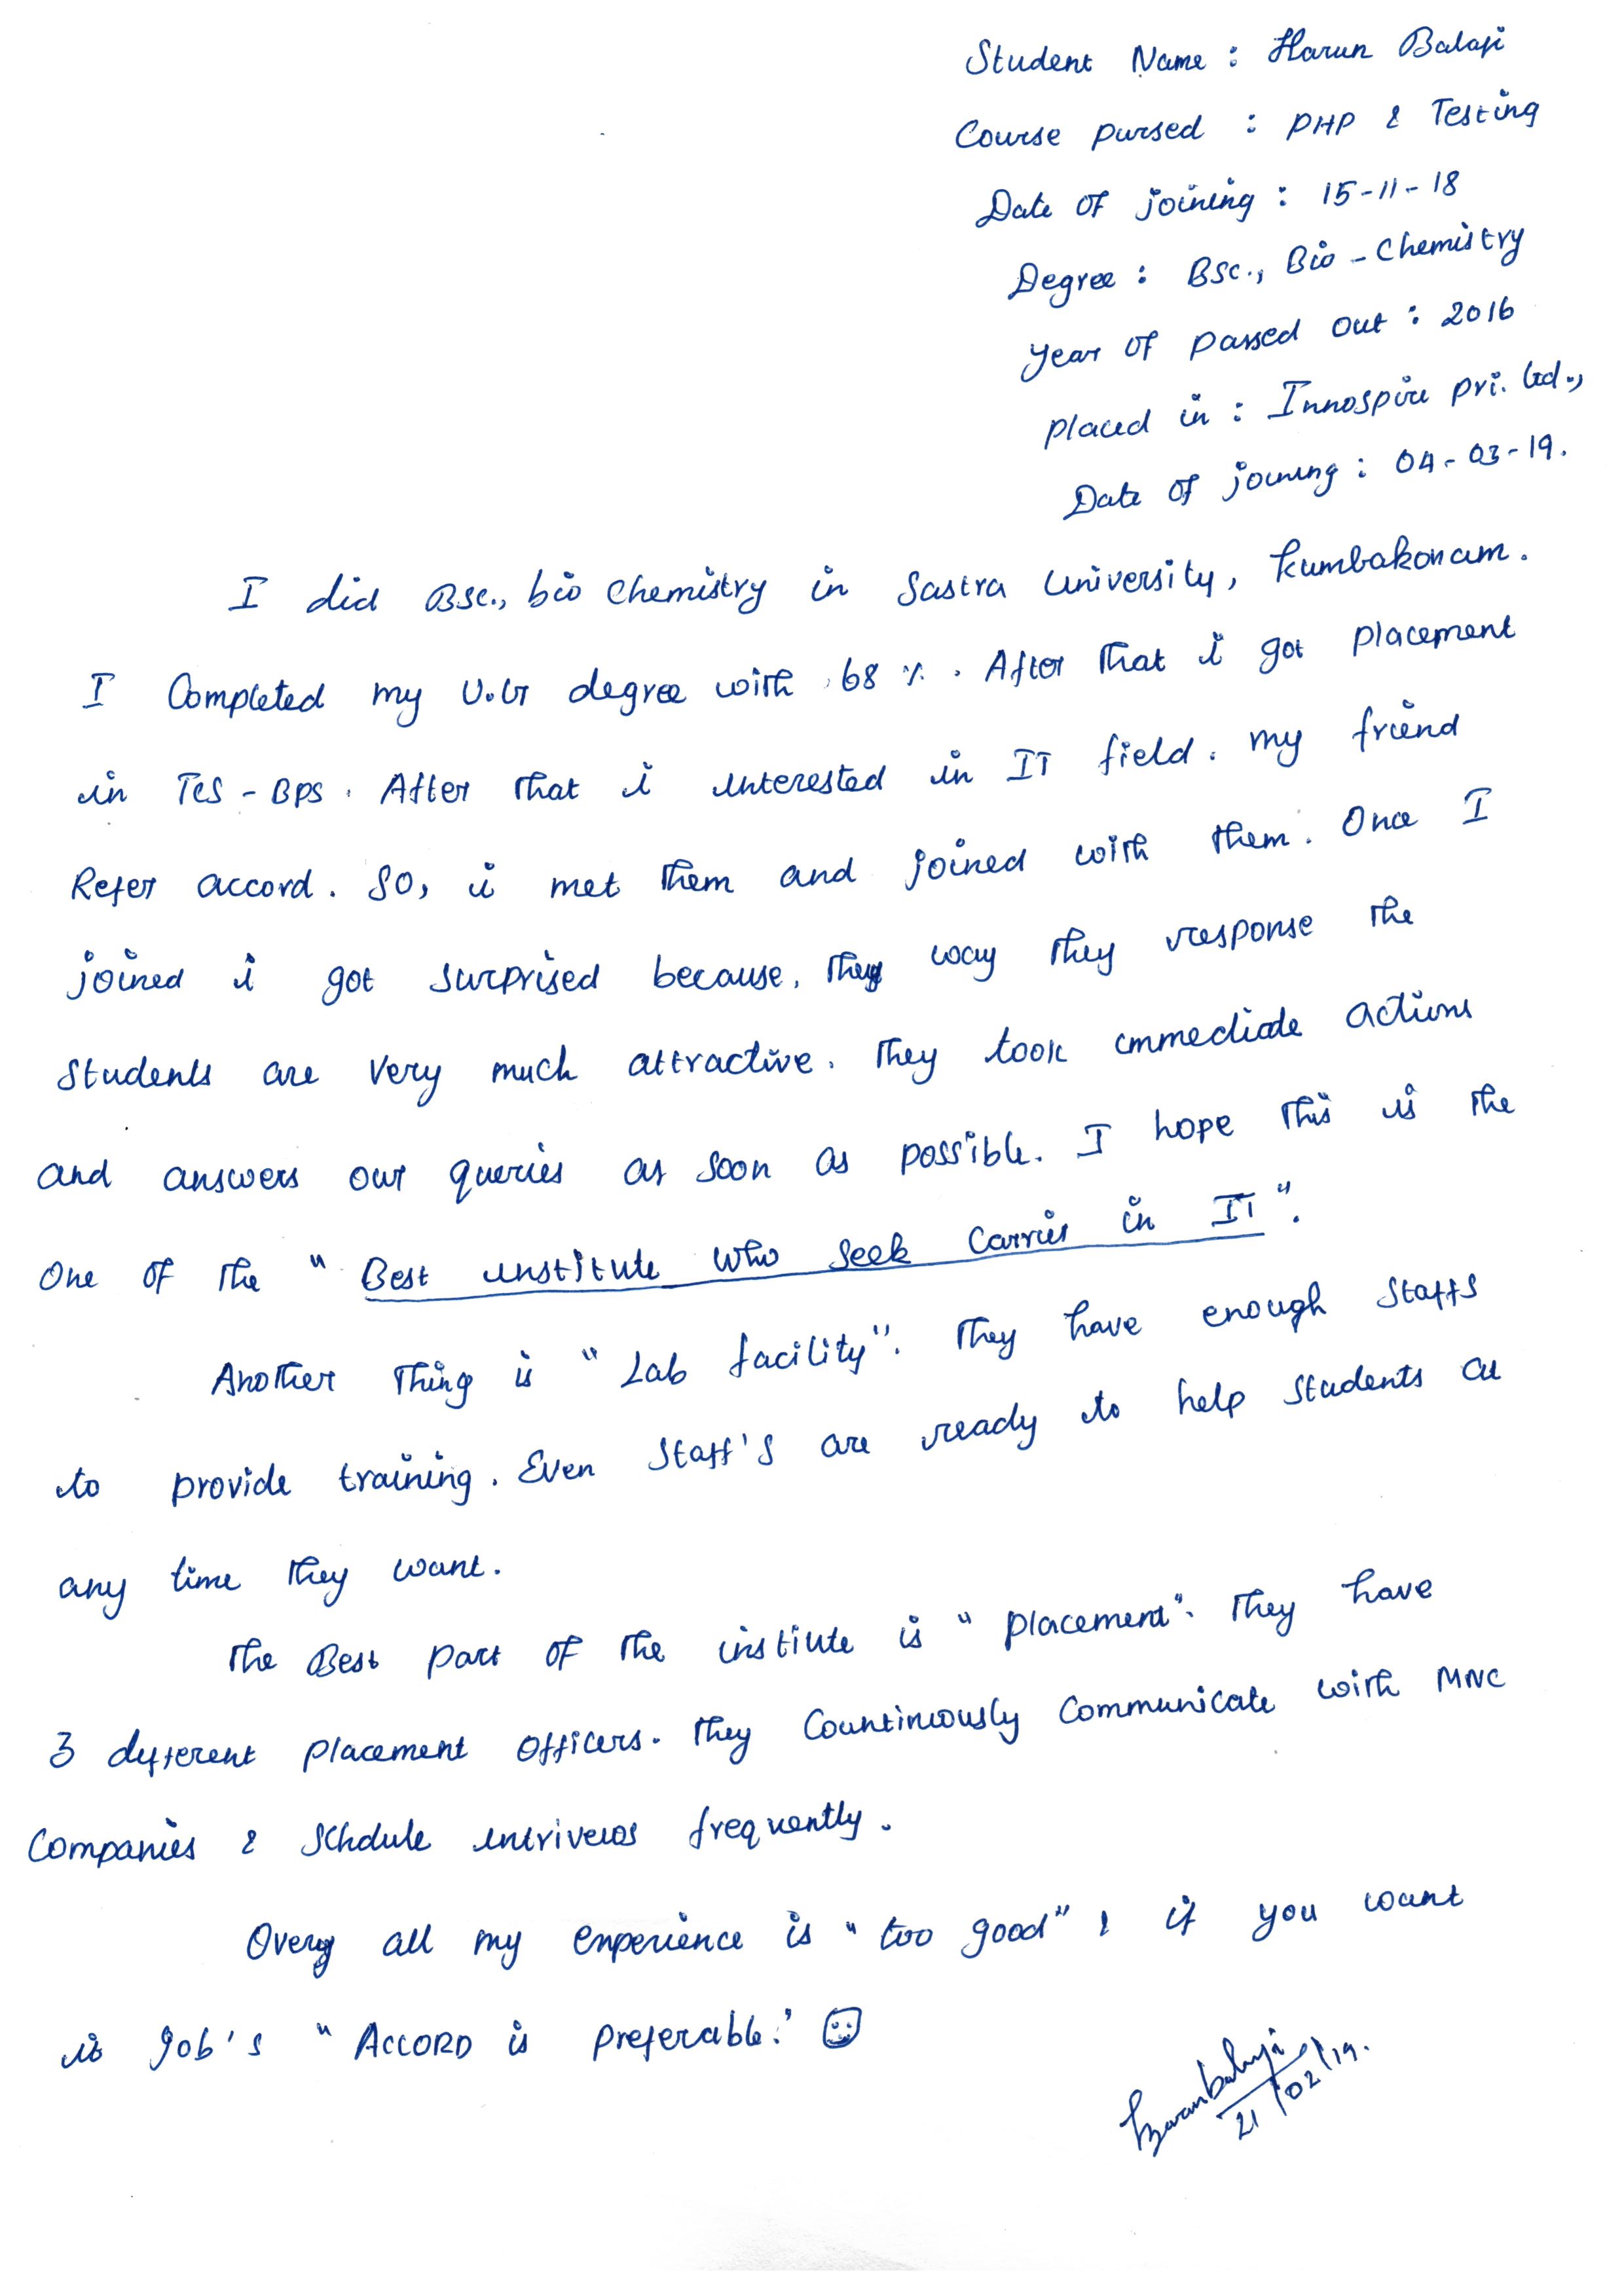 Student Name : Harun Balaji
Course pursed : PHP & Testing
Date of joining : 15-11-18
Degree : BSc., Bio - Chemistry
year of passed out : 2016
placed in : Innospire pri. Ltd.,
Date of joining : 04-03-19.
I did BSc., bio chemistry in Sastra University, kumbakonam.
I Completed my U.G degree with 68 %. After that i got placement
in TCS - BPS. After that i interested in IT field. my friend
Refer accord. So, i met them and joined with them. Once I
joined i got surprised because, they way they response the
students are very much attractive. They took immediate actions
and answers our queries as soon as possible. I hope this is the
One of the " Best institute who seek Carrier in IT ".
Another thing is " Lab facility". They have enough staffs
to provide training. Even Staff's are ready to help students at
any time they want.
The Best part of the institute is " placement". They have
3 different placement officers. They Countinuously Communicate with MNC
Companies & Schdule intrivews frequently.
Overy all my experience is " too good" & if you want
it Job's " ACCORD is preferable."
Harunbalaji
21/02/19.